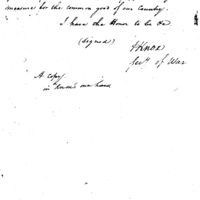 measure for the common good of our Country.
I have the Honor to be &c
(signed)
HKnox
Secy of War
A copy
in Knox's own hand